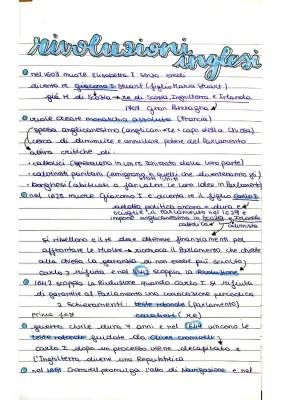 rivoluzioni inglesi
nel 1603 muore Elisabetta I senza eredi
diventa re giacomo I Stuart (figlio Maria Stuart)
già re di Scozia → re di Scozia Inghilterra e Irlanda
Gran Bretagna
vuole creare monarchia assoluta (Francia)
sposa anglicanesimo (anglican → re = capo della Chiesa)
cerca di diminuire e annullare potere del Parlamento
attira critiche di:
cattolici (speravano in un re schierato dalla loro parte)
calvinisti puritani (emigrano in quelli che diventeranno gli
Stati Uniti
borghesi (abituati a far valere le loro idee in Parlamento)
nel 1625 muore Giacomo I e diventa re il figlio Carlo I
attua politica ancora + dura e
scioglie il Parlamento nel 1629 e
impone anglicanesimo in Scozia e Irlanda
cattolica calvinista
si ribellano e il re deve ottenere finanziamenti per
affrontare le rivolte → convoca il Parlamento che chiede
alla chiesa la garanzia di non essere più sciolto
Carlo I rifiuta e nel 1642 scoppia la rivoluzione
1642 scoppia la rivoluzione quando Carlo I si rifiuta
di garantire al Parlamento una convocazione periodica
2 Schieramenti: teste rotonde (parlamento)
prima fase cavalieri (re)
guerra civile dura 7 anni e nel 1649 vincono le
teste rotonde guidate da Oliver Cromwell
Carlo I dopo un processo viene decapitato e
l'Inghilterra diviene una Repubblica
nel 1651 Cromwell promulga l'Atto di Navigazione e nel